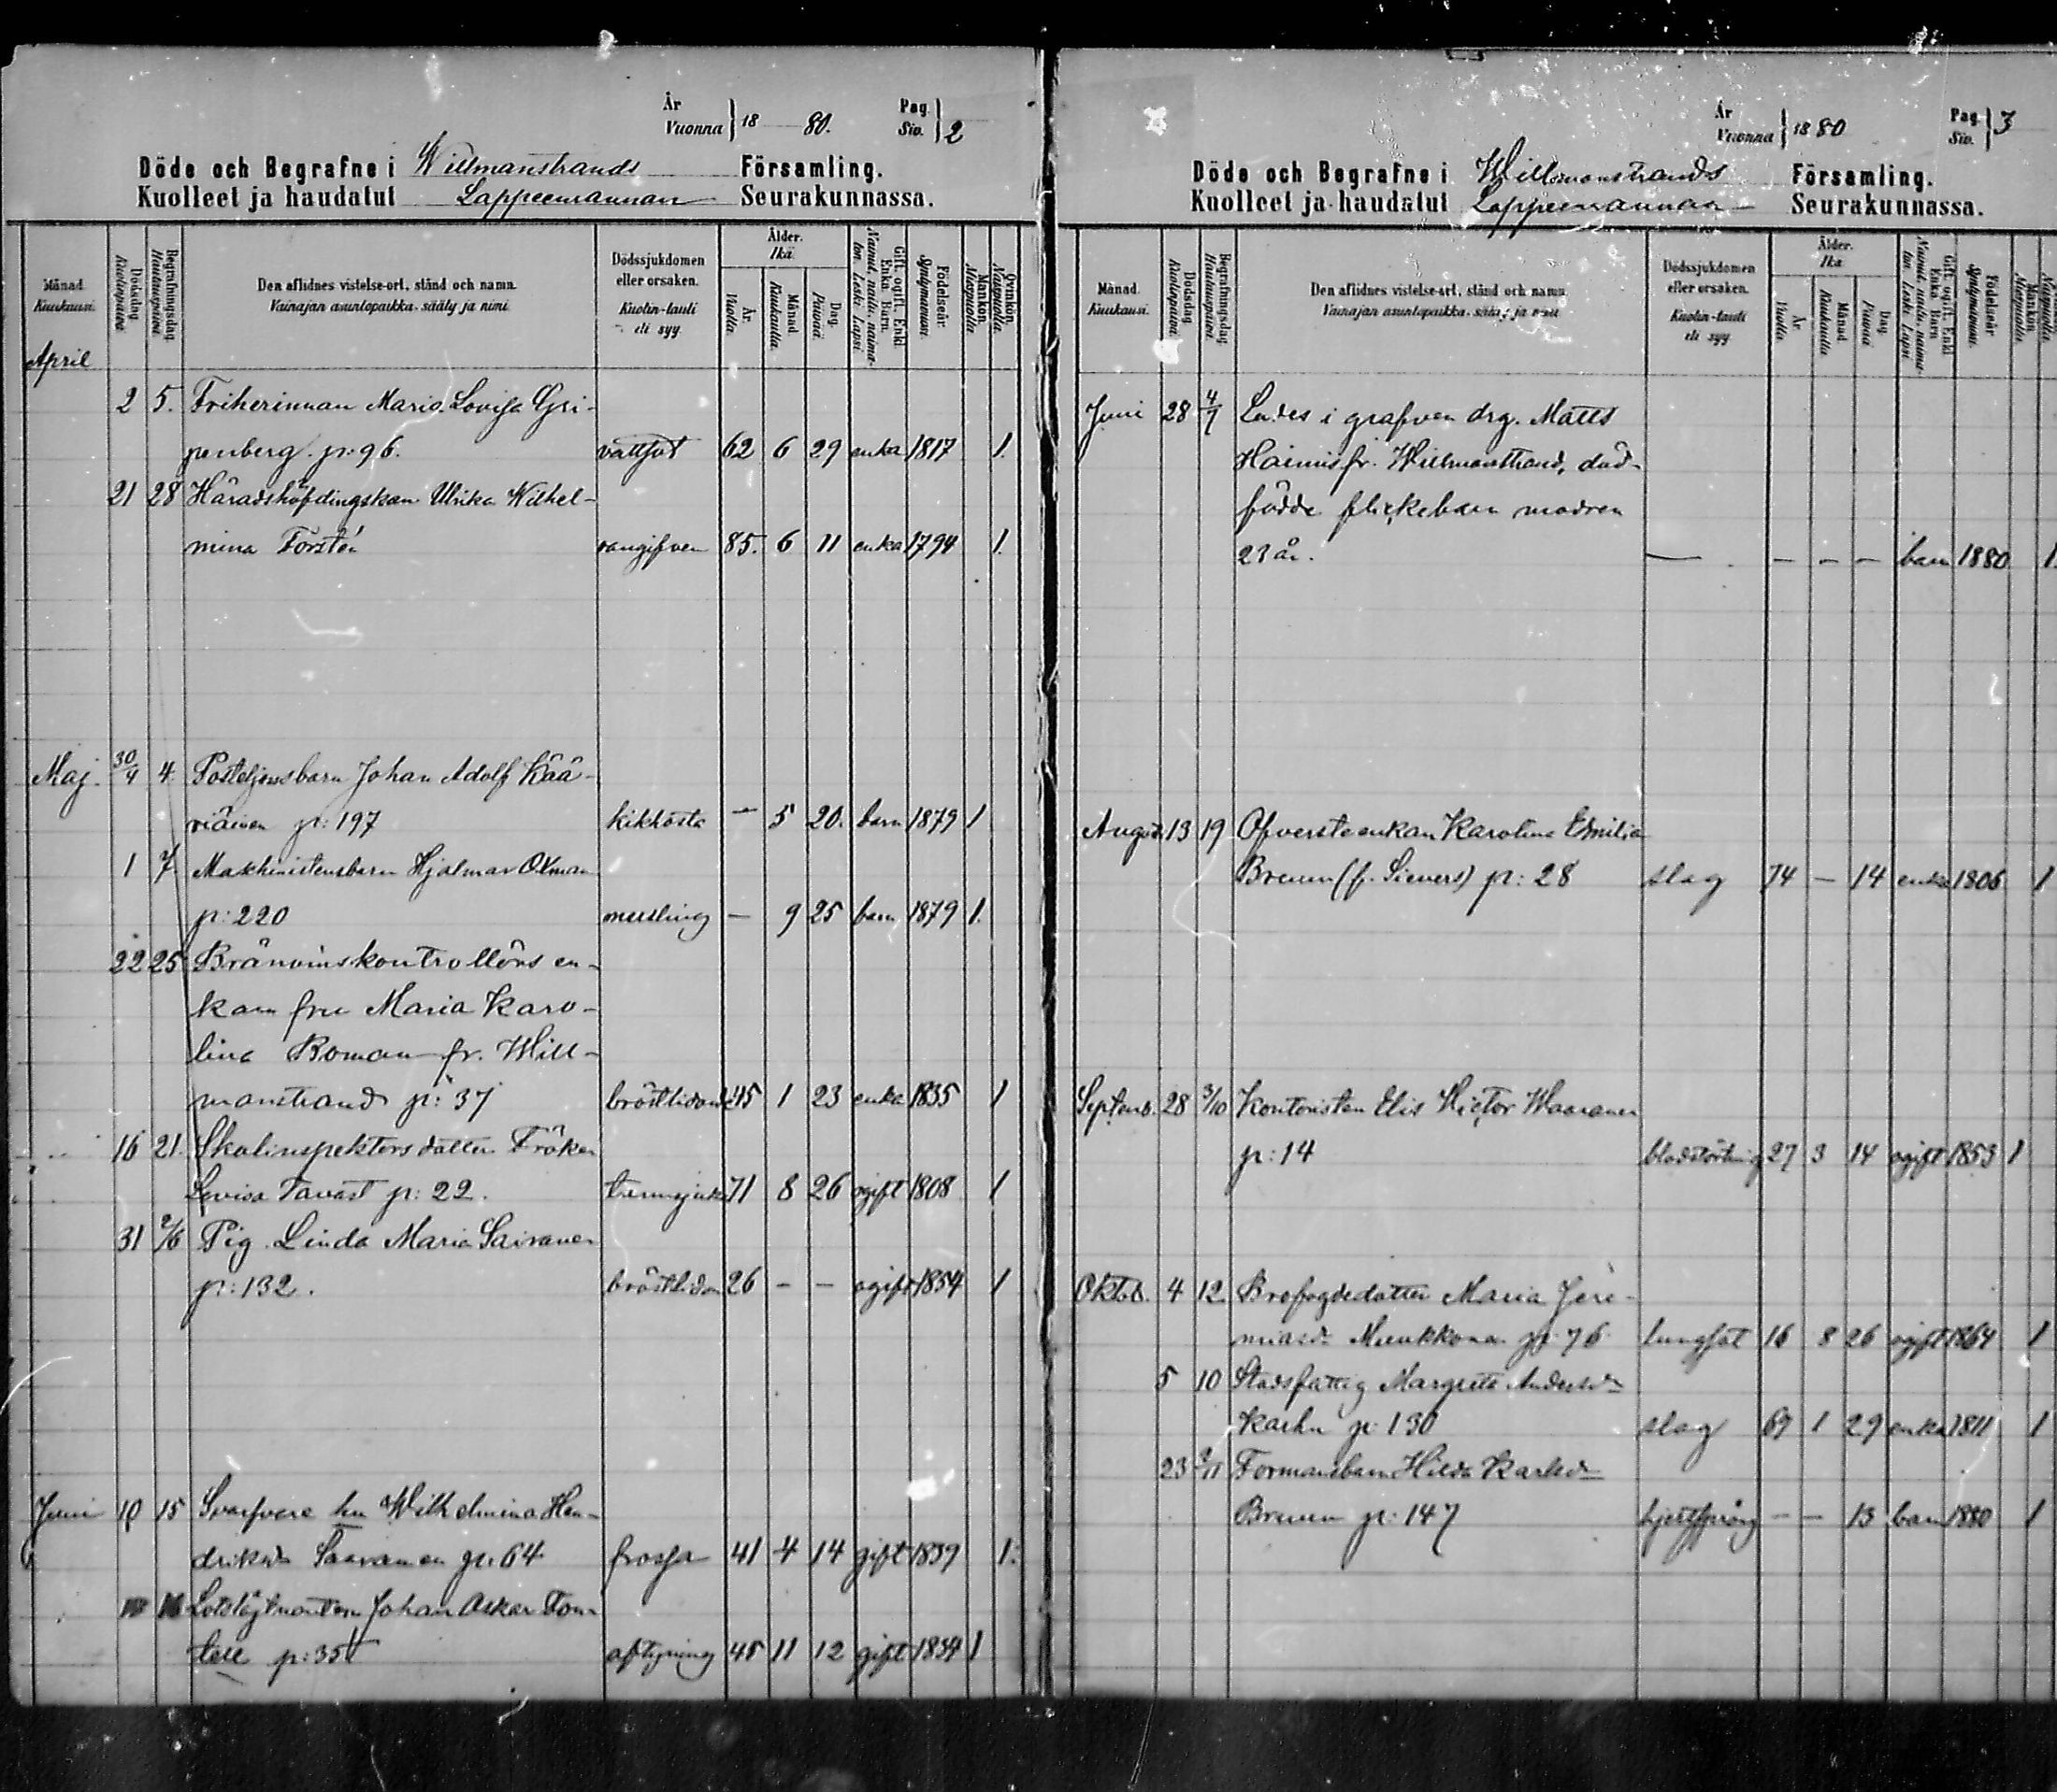 År
Vuonna } 18 80.
Pag.
Siv. } 2
Döde och Begrafne i Willmanstrands Församling.
Kuolleet ja haudatut Lappeenrannan Seurakunnassa.
Månad. Kuukausi.
Dödsdag. Kuolinpäivä.
Begrafningsdag. Hautauspäivä.
Den aflidnes vistelse-ort, stånd och namn.
Vainajan asuntopaikka, sääty ja nimi.
Dödssjukdomen eller orsaken.
Kuolin-tauti eli syy.
Ålder. Ikä.
År. Vuotta.
Månad. Kuukautta.
Dag. Päivää.
Gift, ogift, Enkl. Enka, Barn.
Nainut, naitu, naimaton, Leski, Lapsi.
Födelseår. Syntymävuosi.
Mankön. Miespuolia.
Qvinkön. Naispuolia.
April
2 5. Friherinnan Maria Lovisa Gri-
penberg p: 96. vattsot 62 6 29 enka 1817 1.
21 28 Häradshöfdingskan Ulrika Wilhel-
mina Forstén 85. 6 11 enka 1794 1.
Maj. 30/4 4. Posteljonsbarn Johan Adolf Kää-
riäinen p: 197 kikhosta — 5 20. barn 1879 1
1 7 Makhinistensbarn Hjalmar
p: 220 messling — 9 25 barn 1879 1.
22 25 Bränvinskontrollörs en-
kan fru Maria Karo-
lina Boman fr. Will-
manstrand p: 37 bröstlidande 45 1 23 enka 1835 1
16 21. Skolinspektors dotter Fröken
Lovisa Tavast p: 22. 71 8 26 ogift 1808 1
31 2/6 Pig. Linda Maria Saivanen
p: 132. bröstlidan 26 - - ogift 1854 1
Juni 10 15 Svarfvare hu Wilhelmina Hen-
driksdr p: 64 frossa 41 4 14 gift 1839 1.
16 Lotslöjtnanten Johan Oskar Fon-
tell p: 35 aftyning 45 11 12 gift 1834 1
År
Vuonna } 18 80
Pag.
Siv. } 3
Döde och Begrafne i Willmanstrands Församling.
Kuolleet ja haudatut Lappeenrannan Seurakunnassa.
Månad. Kuukausi.
Dödsdag. Kuolinpäivä.
Begrafningsdag. Hautauspäivä.
Den aflidnes vistelse-ort, stånd och namn.
Vainajan asuntopaikka, sääty ja nimi.
Dödssjukdomen eller orsaken.
Kuolin-tauti eli syy.
Ålder. Ikä.
År. Vuotta.
Månad. Kuukautta.
Dag. Päivää.
Gift, ogift, Enkl. Enka, Barn.
Nainut, naitu, naimaton, Leski, Lapsi.
Födelseår. Syntymävuosi.
Mankön. Miespuolia.
Naispuolia.
Juni 28 4/7 Lades i grafven drg. Matts
fr. Willmanstrand, död-
födde flickebarn modren
23 år. — — — — barn 1880 1.
August 13 19 Öfversteenkan Karolina Emilia
Bruun (f. Sievers) p: 28 slag 74 — 14 enka 1806 1
Septemb. 28 3/10 Kontoristen Elis Victor Waaranen
p: 14 blodstörtning 27 3 14 ogift 1853 1
Oktob. 4 12 Brofogdedotter Maria Jere-
miasd. Munkkonen p: 76 lungsot 16 8 26 ogift 1864 1
5 10 Stadsfattig Margreta Andersdr
Karhu p: 130 slag 69 1 29 enka 1811 1
23 Formansbarn Hilda Karlsdr
Bruun p: 147 - — 13 barn 1880 1